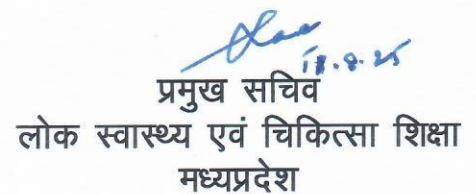 18.8.25
प्रमुख सचिव
लोक स्वास्थ्य एवं चिकित्सा शिक्षा
मध्यप्रदेश